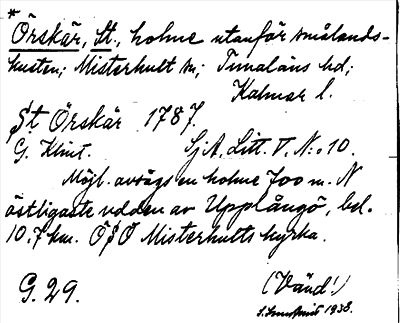 * Örskär, St., holme utanför smålands-
kusten; Misterhult sn; Tunaläns hd;
Kalmar l.
St Örskär 1787.
G. Klint. SjA, Litt. V, N:o 10.
Möjl. avsågs en holme 700 m. N
östligaste udden av Upplångö, bel.
10,7 km. ÖSÖ Misterhults kyrka.
G. 29. (Vänd!)
1938.